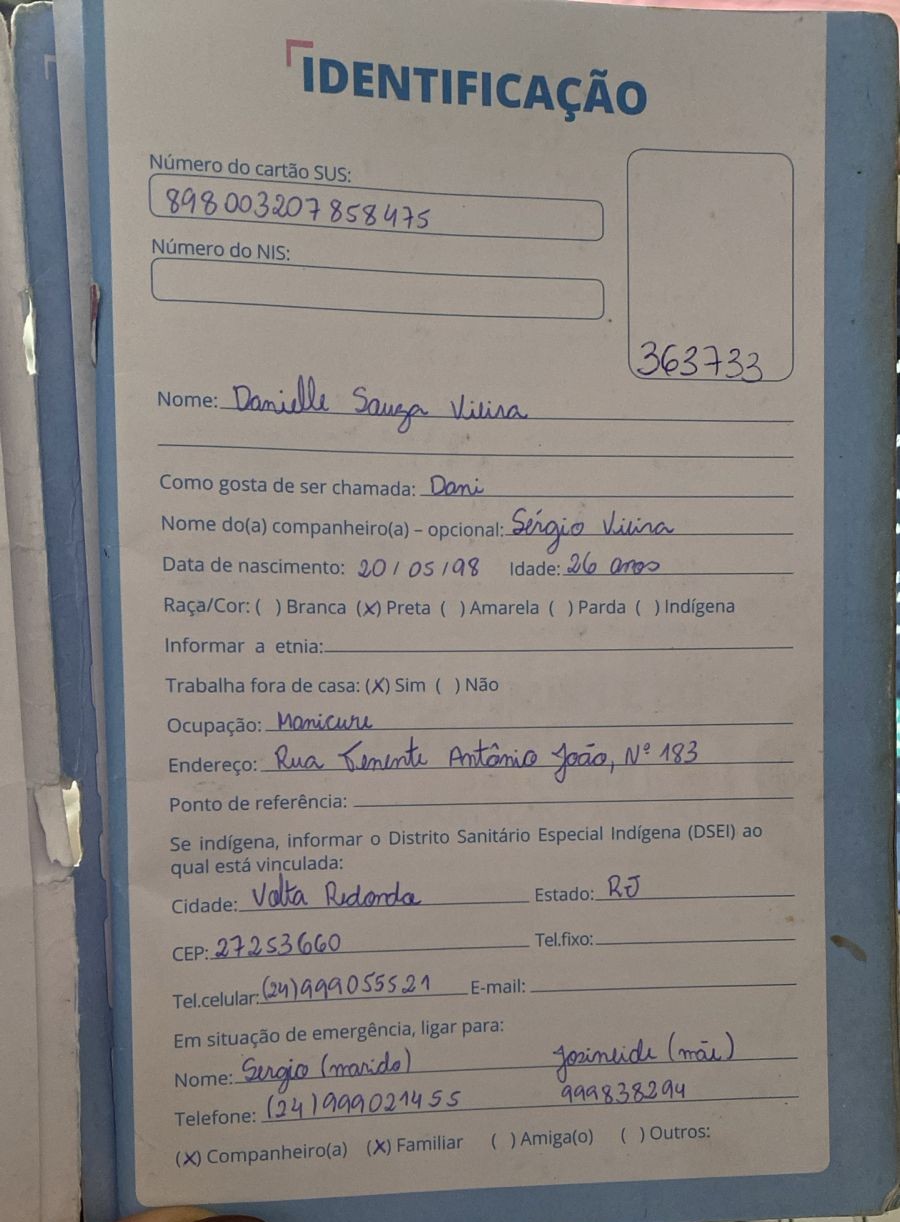 IDENTIFICAÇÃO
Número do cartão SUS:
898003207858475
Número do NIS:
363733
Nome: Danielle Souza Vieira
Como gosta de ser chamada: Dani
Nome do(a) companheiro(a) – opcional: Sérgio Vieira
Data de nascimento: 20/05/98 Idade: 26 anos
Raça/Cor: ( ) Branca (X) Preta ( ) Amarela ( ) Parda ( ) Indígena
Informar a etnia:
Trabalha fora de casa: (X) Sim ( ) Não
Ocupação: Manicure
Endereço: Rua Tenente Antônio João, Nº 183
Ponto de referência:
Se indígena, informar o Distrito Sanitário Especial Indígena (DSEI) ao
qual está vinculada:
Cidade: Volta Redonda Estado: RJ
CEP: 27253660 Tel.fixo:
Tel.celular: (24)999055521 E-mail:
Em situação de emergência, ligar para:
Nome: Sergio (marido) Josineide (mãe)
Telefone: (24)999021455 999838294
(X) Companheiro(a) (X) Familiar ( ) Amiga(o) ( ) Outros: